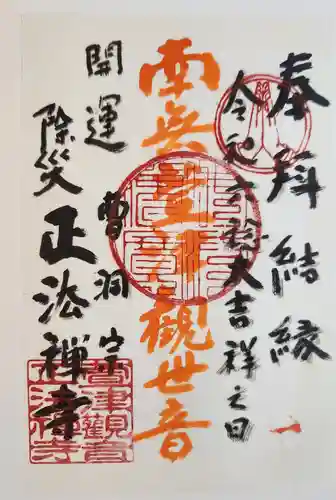 奉拝 結縁
令和六年大吉祥之日
南無聖观觀世音
開運 曹洞宗
除災 正法禅寺
會津観音
正法禅寺